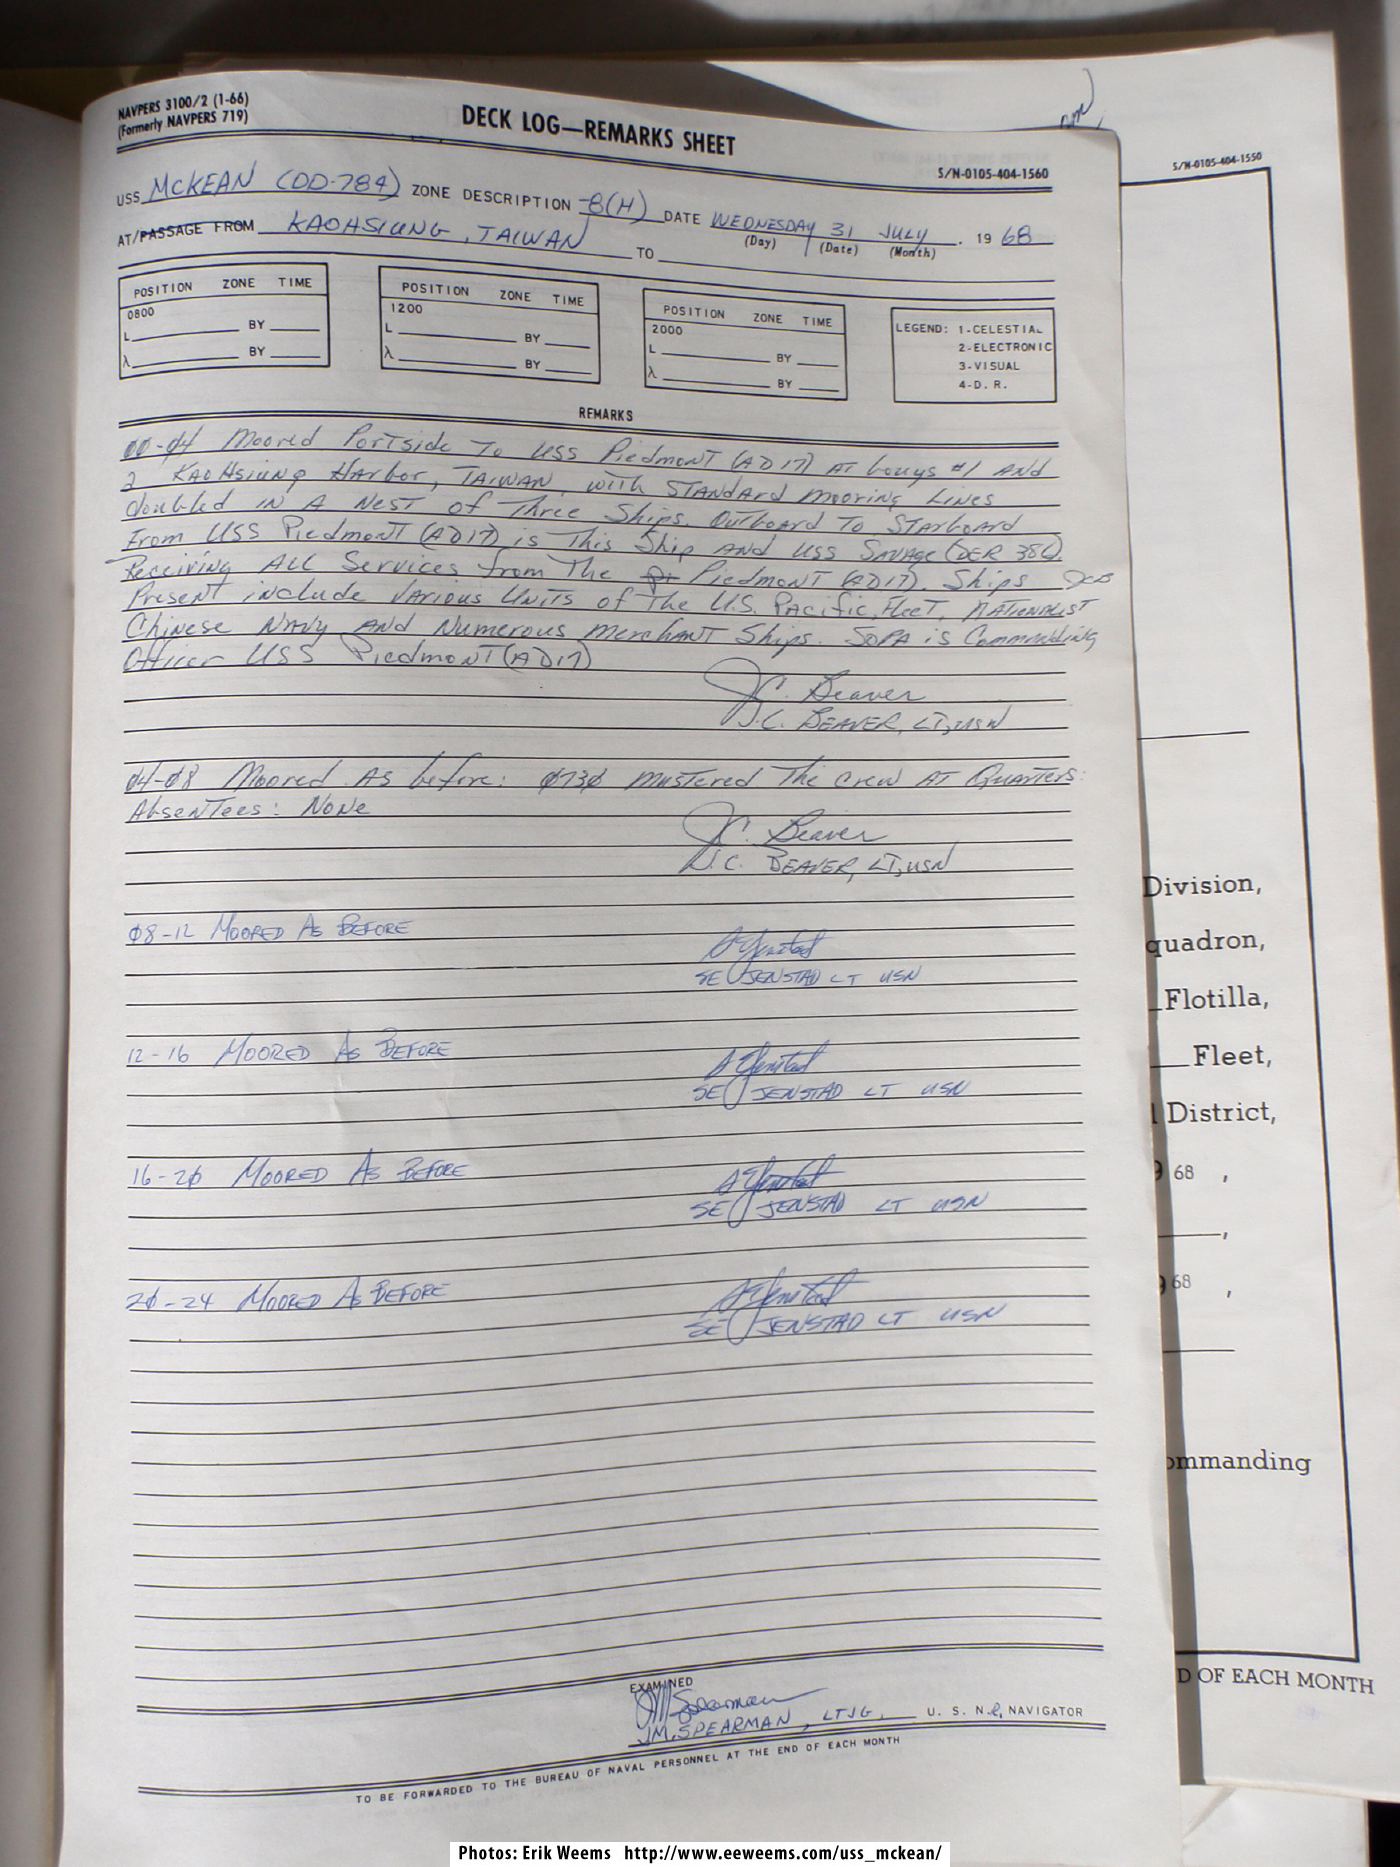 NAVPERS 3100/2 (1-66)
(Formerly NAVPERS 719)
DECK LOG—REMARKS SHEET
S/N-0105-404-1560
USS MCKEAN (DD-784) ZONE DESCRIPTION -8(H) DATE WEDNESDAY 31 JULY, 1968
(Day) (Date) (Month)
AT/PASSAGE FROM KAOHSIUNG, TAIWAN TO
POSITION ZONE TIME
0800
L BY
λ BY
POSITION ZONE TIME
1200
L BY
λ BY
POSITION ZONE TIME
2000
L BY
λ BY
LEGEND: 1-CELESTIAL
2-ELECTRONIC
3-VISUAL
4-D. R.
REMARKS
00-04 Moored Portside To USS Piedmont (AD17) AT bouys #1 AND
2 KAOHSiung Harbor, TAIWAN, with STANdard mooring Lines
doubled IN A Nest of Three Ships. Outboard To Starboard
From USS Piedmont (AD17) is This Ship AND USS SAVAGE (DER 386).
Receiving ALL Services from The Piedmont (AD17). Ships JCB
Present include Various Units of The U.S. Pacific Fleet, NATIONALIST
Chinese Navy AND Numerous Merchant Ships. SOPA is Commanding
Officer USS Piedmont (AD17)
J.C. Beaver
J.C. BEAVER, LT, USN
04-08 Moored As before: 0730 mustered The crew AT Quarters:
Absentees: None
J.C. Beaver
J.C. BEAVER, LT, USN
08-12 MOORED AS BEFORE
SE Jenstad
SE JENSTAD LT USN
12-16 MOORED AS BEFORE
SE Jenstad
SE JENSTAD LT USN
16-20 MOORED AS BEFORE
SE Jenstad
SE JENSTAD LT USN
20-24 MOORED AS BEFORE
SE Jenstad
SE JENSTAD LT USN
EXAMINED
JM Spearman
JM. SPEARMAN, LTJG, U. S. N.R. NAVIGATOR
TO BE FORWARDED TO THE BUREAU OF NAVAL PERSONNEL AT THE END OF EACH MONTH
S/N-0105-404-1550
Division,
quadron,
Flotilla,
Fleet,
District,
68 ,
,
68 ,
ommanding
D OF EACH MONTH
Photos: Erik Weems http://www.eeweems.com/uss_mckean/